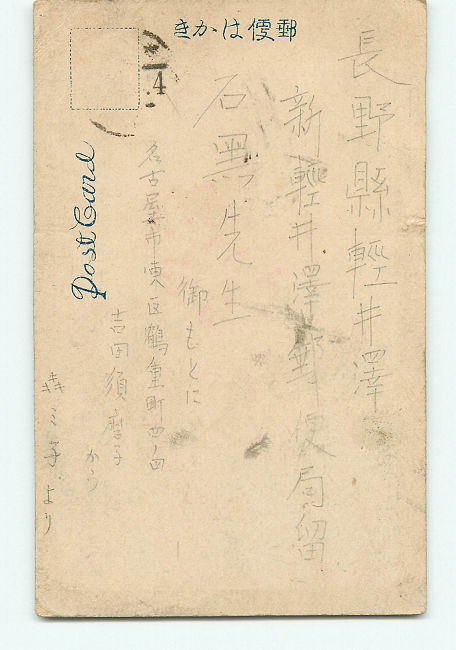 きかは便郵
長野縣輕井澤
新輕井澤郵便局留
石黑先生
御もとに
名古屋市東区鶴重町四ノ四
吉田須磨子
から
ミ子より
Post Card
4